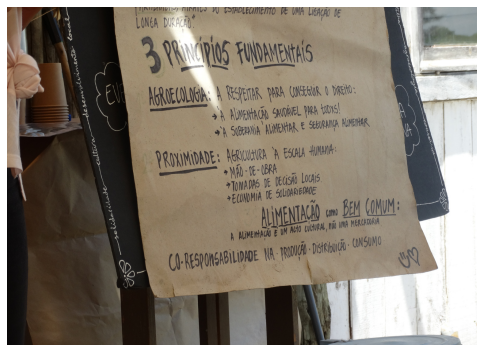 LONGA DURAÇÃO"
3 PRINCÍPIOS FUNDAMENTAIS
AGROECOLOGIA: A RESPEITAR PARA CONSEGUIR O DIREITO:
→ A ALIMENTAÇÃO SAUDÁVEL PARA TODXS!
→ A SOBERANIA ALIMENTAR E SEGURANÇA ALIMENTAR
PROXIMIDADE: AGRICULTURA À ESCALA HUMANA:
→ MÃO-DE-OBRA
→ TOMADAS DE DECISÃO LOCAIS
→ ECONOMIA DE SOLIDARIEDADE
ALIMENTAÇÃO como BEM COMUM:
A ALIMENTAÇÃO É UM ACTO CULTURAL, NÃO UMA MERCADORIA
CO-RESPONSABILIDADE NA · PRODUÇÃO · DISTRIBUIÇÃO · CONSUMO
solidariedade
cultura
desenvolvimento